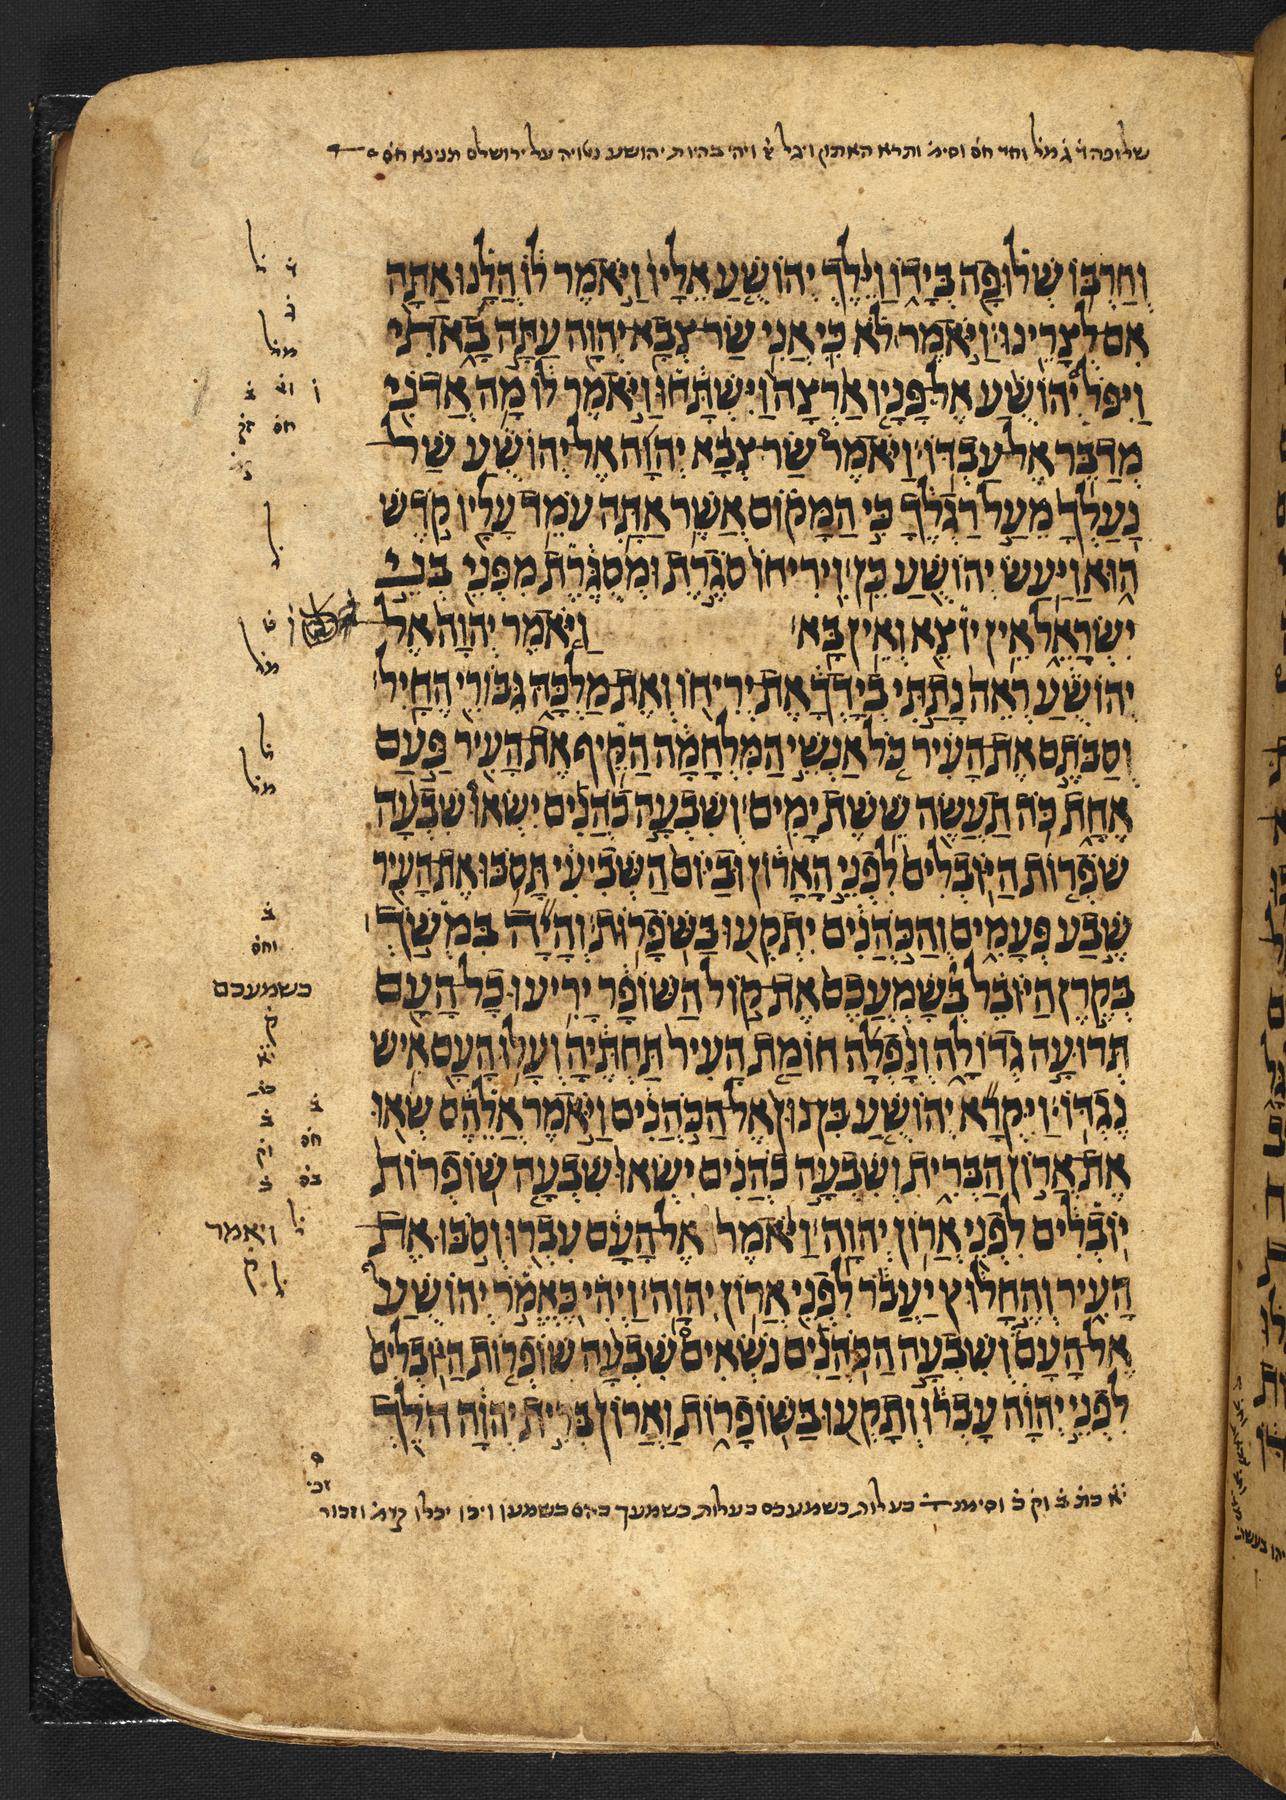 שלופה ד ג מל וחד חס וסימ ותרא האתון ויגל ויהי בהיות יהושע נטויה על ירושלם תנינא חס
וְחַרְבּוֹ שְׁלוּפָה בְּיָדוֹ וַיֵּלֶךְ יְהוֹשֻׁעַ אֵלָיו וַיֹּאמֶר לוֹ הֲלָנוּ אַתָּה
אִם לְצָרֵינוּ וַיֹּאמֶר לֹא כִּי אֲנִי שַׂר צְבָא יְהוָה עַתָּה בָאתִי
וַיִּפֹּל יְהוֹשֻׁעַ אֶל פָּנָיו אַרְצָה וַיִּשְׁתָּחוּ וַיֹּאמֶר לוֹ מָה אֲדֹנִי
מְדַבֵּר אֶל עַבְדּוֹ וַיֹּאמֶר שַׂר צְבָא יְהוָה אֶל יְהוֹשֻׁעַ שַׁל
נַעַלְךָ מֵעַל רַגְלֶךָ כִּי הַמָּקוֹם אֲשֶׁר אַתָּה עֹמֵד עָלָיו קֹדֶשׁ
הוּא וַיַּעַשׂ יְהוֹשֻׁעַ כֵּן וִירִיחוֹ סֹגֶרֶת וּמְסֻגֶּרֶת מִפְּנֵי בְּנֵי
יִשְׂרָאֵל אֵין יוֹצֵא וְאֵין בָּא וַיֹּאמֶר יְהוָה אֶל
יְהוֹשֻׁעַ רְאֵה נָתַתִּי בְיָדְךָ אֶת יְרִיחוֹ וְאֶת מַלְכָּהּ גִּבּוֹרֵי הֶחָיִל
וְסַבֹּתֶם אֶת הָעִיר כֹּל אַנְשֵׁי הַמִּלְחָמָה הַקֵּיף אֶת הָעִיר פַּעַם
אֶחָת כֹּה תַעֲשֶׂה שֵׁשֶׁת יָמִים וְשִׁבְעָה כֹהֲנִים יִשְׂאוּ שִׁבְעָה
שׁוֹפְרוֹת הַיּוֹבְלִים לִפְנֵי הָאָרוֹן וּבַיּוֹם הַשְּׁבִיעִי תָּסֹבּוּ אֶת הָעִיר
שֶׁבַע פְּעָמִים וְהַכֹּהֲנִים יִתְקְעוּ בַּשּׁוֹפָרוֹת וְהָיָה בִּמְשֹׁךְ
בְּקֶרֶן הַיּוֹבֵל בְּשָׁמְעֲכֶם אֶת קוֹל הַשּׁוֹפָר יָרִיעוּ כָל הָעָם
תְּרוּעָה גְדוֹלָה וְנָפְלָה חוֹמַת הָעִיר תַּחְתֶּיהָ וְעָלוּ הָעָם אִישׁ
נֶגְדּוֹ וַיִּקְרָא יְהוֹשֻׁעַ בִּן נוּן אֶל הַכֹּהֲנִים וַיֹּאמֶר אֲלֵהֶם שְׂאוּ
אֶת אֲרוֹן הַבְּרִית וְשִׁבְעָה כֹהֲנִים יִשְׂאוּ שִׁבְעָה שׁוֹפְרוֹת
יוֹבְלִים לִפְנֵי אֲרוֹן יְהוָה וַיֹּאמֶר אֶל הָעָם עִבְרוּ וְסֹבּוּ אֶת
הָעִיר וְהֶחָלוּץ יַעֲבֹר לִפְנֵי אֲרוֹן יְהוָה וַיְהִי כֶּאֱמֹר יְהוֹשֻׁעַ
אֶל הָעָם וְשִׁבְעָה הַכֹּהֲנִים נֹשְׂאִים שִׁבְעָה שׁוֹפְרוֹת הַיּוֹבְלִים
לִפְנֵי יְהוָה עָבְרוּ וְתָקְעוּ בַּשּׁוֹפָרוֹת וַאֲרוֹן בְּרִית יְהוָה הֹלֵךְ
כשמעכם
ויאמר
יא כת ב וק כ וסימנ בעלות כשמעכם כעלות כשמעך כשמען ויכו יכלו וזכור